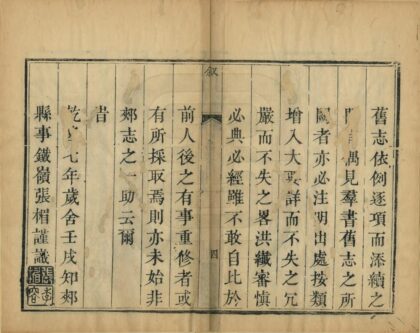 舊志依例逐項而添續之
偶見羣書舊志之所
闕者亦必注明出處按類
增入大要詳而不失之冗
嚴而不失之畧洪纖審慎
必典必經雖不敢自比於
叙
四
前人後之有事重修者或
有所採取焉則亦未始非
郟志之一助云爾
旹
乾隆七年歲舍壬戌知郟
縣事鐵嶺張楣謹識